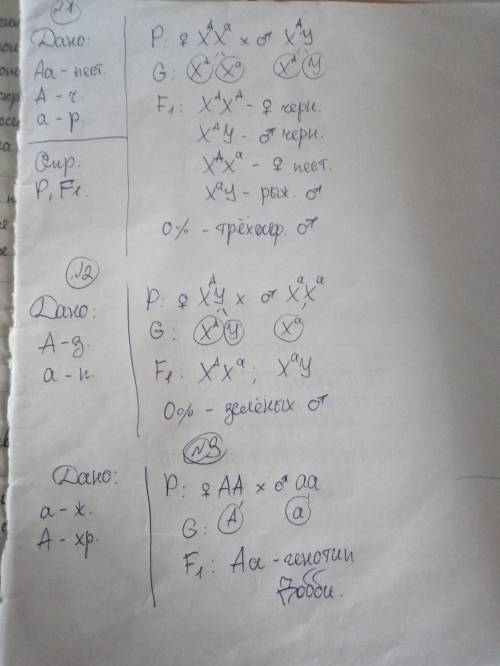 №1
Дано:
Аа - пест.
А - ч.
а - р.
Опр.
P, F₁.
P: ♀ XᴬXᵃ × ♂ XᴬY
G: Xᴬ Xᵃ Xᴬ Y
F₁: XᴬXᴬ - ♀ черн.
XᴬY - ♂ черн.
XᴬXᵃ - ♀ пест.
XᵃY - рыж. ♂
0% - трёхшер. ♂
№2
Дано:
А - з.
а - к.
P: ♀ XᴬY × ♂ XᵃXᵃ
G: Xᴬ Y Xᵃ
F₁: XᴬXᵃ; XᵃY
0% - зелёных ♂
№3
Дано:
а - ж.
А - хр.
P: ♀ AA × ♂ aa
G: A a
F₁: Aa - генотип
Добби.